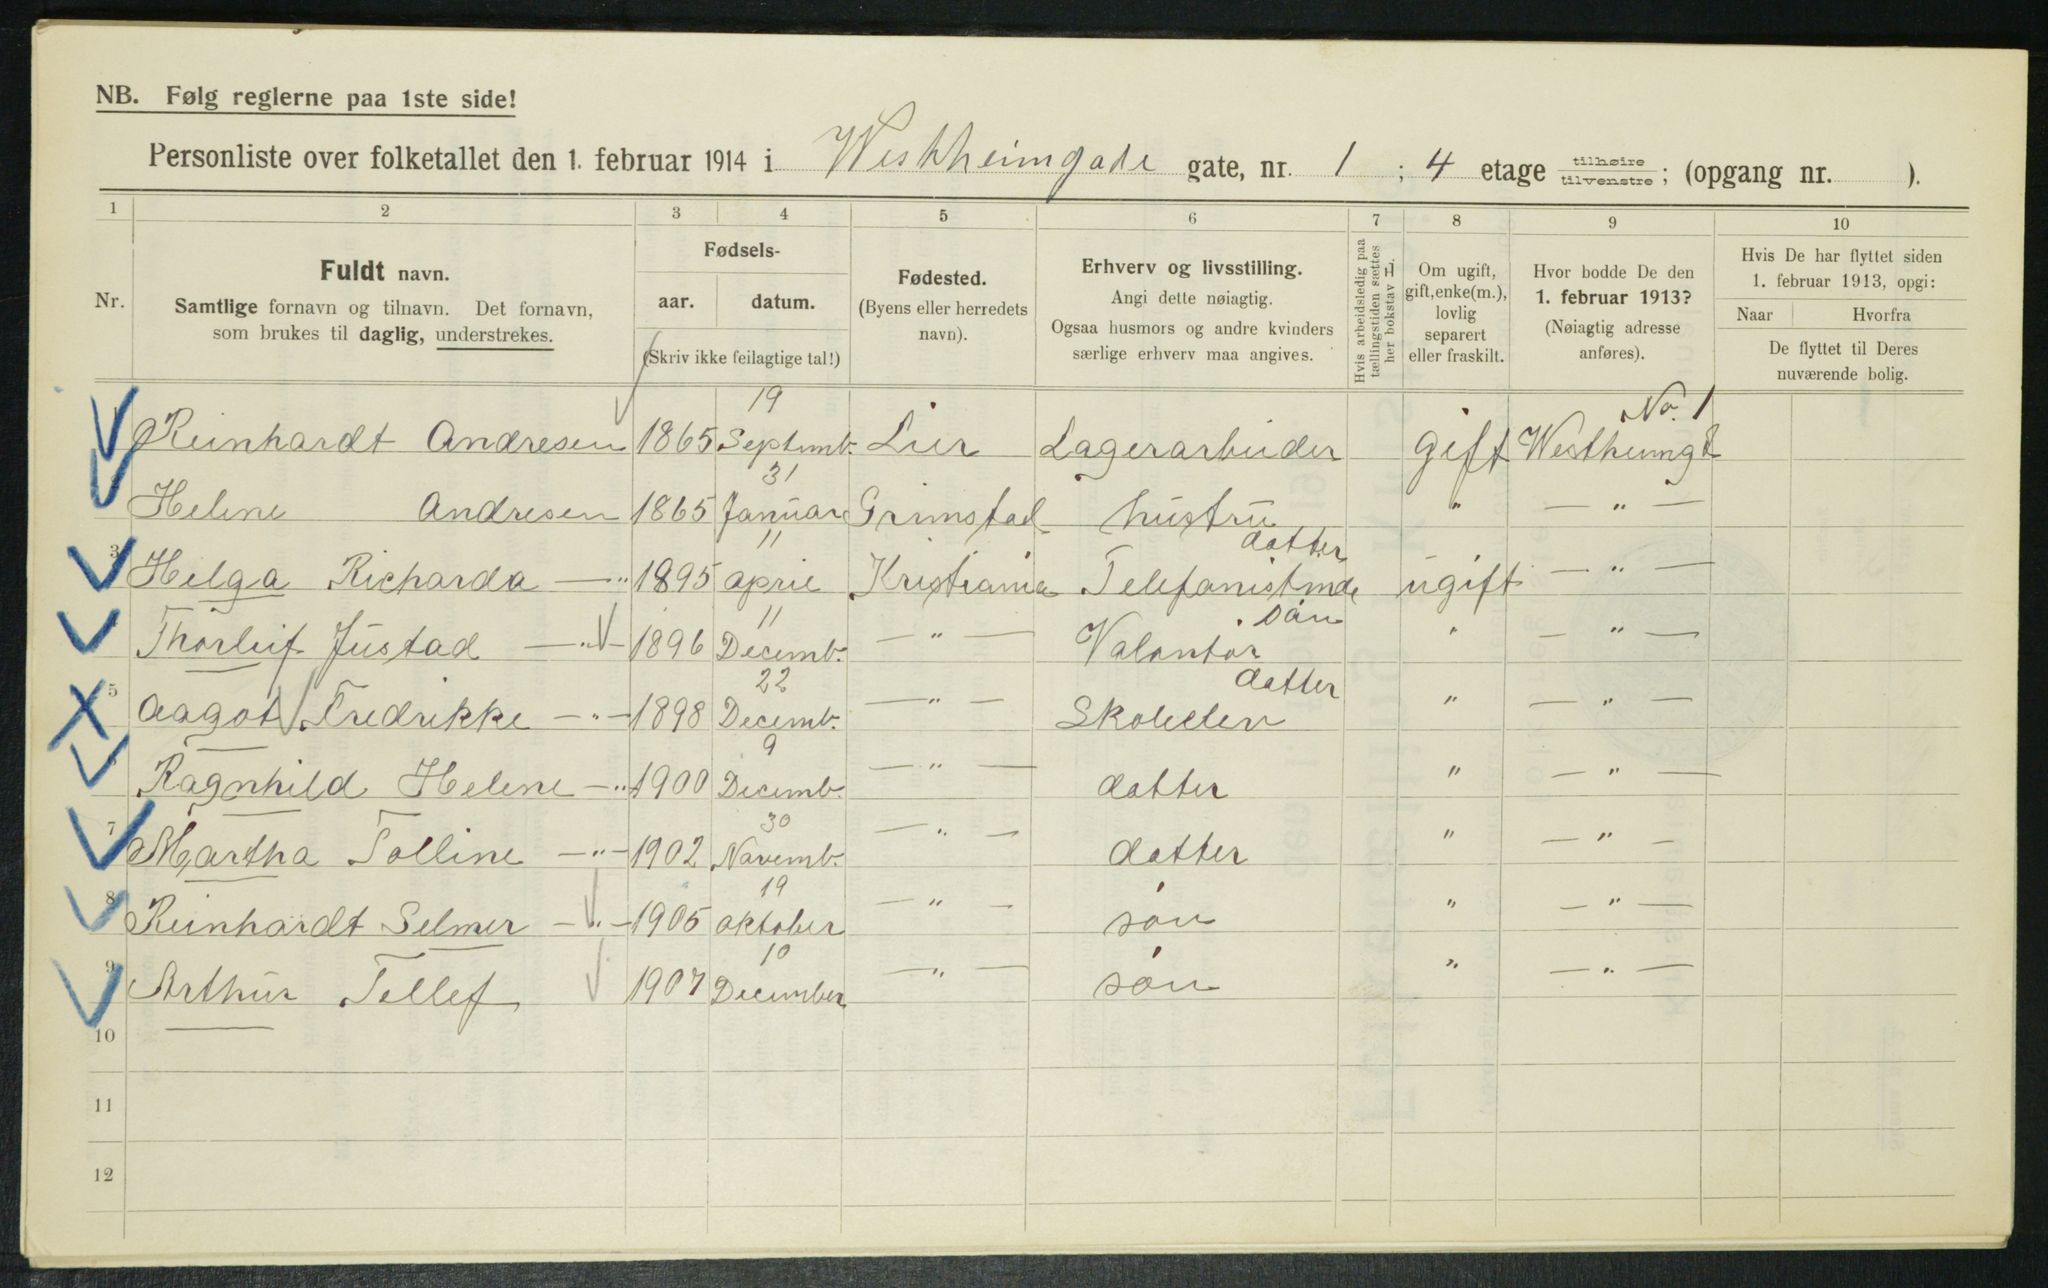 NB. Følg reglerne paa 1ste side!
Personliste over folketallet den 1. februar 1914 i Westhheimgade gate, nr. 1 ; 4 etage tilhøire tilvenstre; (opgang nr. ).
1 2 3 4 5 6 7 8 9 10
Nr.
Fuldt navn.
Samtlige fornavn og tilnavn. Det fornavn,
som brukes til daglig, understrekes.
Fødsels-
aar. datum.
(Skriv ikke feilagtige tal!)
Fødested.
(Byens eller herredets
navn).
Erhverv og livsstilling.
Angi dette nøiagtig.
Ogsaa husmors og andre kvinders
særlige erhverv maa angives.
Hvis arbeidsledig paa
tællingstiden sættes
her bokstav L.
Om ugift,
gift, enke(m.),
lovlig
separert
eller fraskilt.
Hvor bodde De den
1. februar 1913?
(Nøiagtig adresse
anføres).
Hvis De har flyttet siden
1. februar 1913, opgi:
Naar Hvorfra
De flyttet til Deres
nuværende bolig.
19 No. 1
Reinhardt Andresen 1865 Septemb. Lier Lagerarbeider gift Westheimgt
31
Helene Andresen 1865 Januar Grimstad hustru " — " —
3 11 datter
Helga Richarda — " 1895 april Kristiania Telefanistinde ugift — " —
11 sån
Thorleif Justad — " — 1896 Decemb. — " — Valontør " — " —
5 22 datter
Aagot Fredrikke — " — 1898 Decemb. — " — Skoleelev " — " —
6 9
Ragnhild Helene — " 1900 Decemb. — " — datter " — " —
7 30
Martha Tolline — " — 1902 Novemb. — " — datter " — " —
8 19
Reinhardt Selmer — " — 1905 oktober — " — søn " — " —
9 10
Arthur Tellef 1907 December — " — søn " — " —
10
11
12